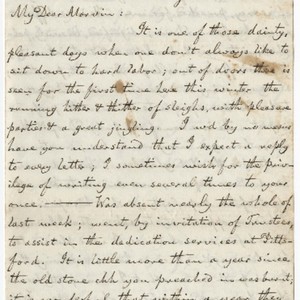 My Dear Marvin :
It is one of those dainty,
pleasant days when one don't always like to
sit down to hard labor; out of doors there is
seen for the first time here this winter the
running hither & thither of sleighs, with pleasure
parties & a great jingling. I wd by no means
have you understand that I expect a reply
to every letter; I sometimes wish for the priv-
ilege of writing even several times to your
once. — Was absent nearly the whole of
last week; went, by invitation of Trustees,
to assist in the dedication services at Pitts-
ford. It is little more than a year since
the old stone chh you preached in was burnt,